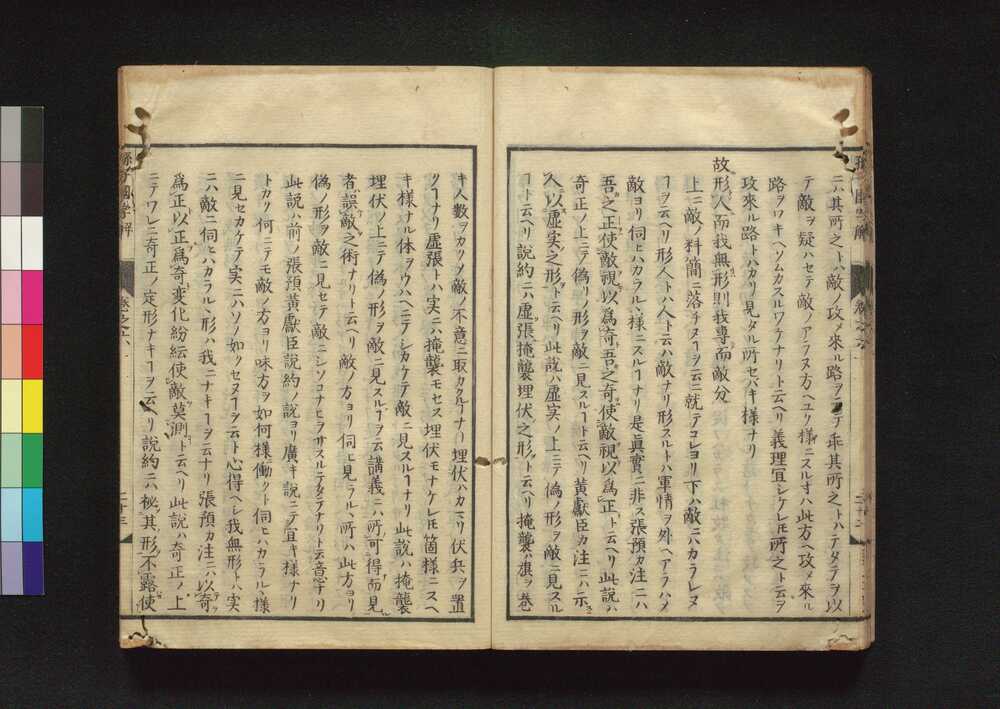 ニハ其所之トハ敵ノ攻メ來ル路ヲ テ乖其所之トハテダテヲ以
テ敵ヲ疑ハセテ敵ノアラヌ方ヘユク樣ニスル寸ハ此方ヘ攻メ來ル
路ヲワキヘソムカスルワケナリト云ヘリ義理宜シケレ𪜈所之ト云ヲ
攻來ル路トハカリ見タル所セバキ樣ナリ
故形人而我無形則我專而敵分
上ニ敵ノ料簡ニ落チヌヿヲ云ニ就テコレヨリ下ハ敵ニハカラレヌ
ヿヲ云ヘリ形人トハ人ト云ハ敵ナリ形スルトハ軍情ヲ外ヘアラハメ
敵ヨリ伺ヒハカラルヽ樣ニスルヿナリ是眞實ニ非ス張預カ注ニハ
吾之正使敵視以爲奇吾之奇使敵視以爲正ト云ヘリ此說ハ
奇正ノ上ニテ偽リノ形ヲ敵ニ見スルヿト云ヘリ黃獻臣カ注ニハ示
人以虛実之形ト云ヘリ此說ハ虛実ノ上ニテ偽ノ形ヲ敵ニ見スル
ヿト云ヘリ說約ニハ虛張掩襲埋伏之形ト云ヘリ掩襲ハ旗ヲ巻
キ人數ヲカクメ敵ノ不意ニ取カクルヿナリ埋伏ハカマリ伏兵ヲ置
クヿナリ虛張トハ実ニハ掩襲モセス埋伏モナケレ𪜈箇樣ニスヘ
キ樣ナル体ヲウハヘニテシカケテ敵ニ見スルヿナリ此說ハ掩襲
埋伏ノ上ニテ偽ノ形ヲ敵ニ見スルヿヲ云講義ニハ所可得而見
者誤敵之術ナリト云ヘリ敵ノ方ヨリ伺ヒ見ラルヽ所ハ此方ヨリ
偽ノ形ヲ敵ニ見セテ敵ニシソコナヒヲサスルテダテナリト云意ナリ
此說ハ前ノ張預黃獻臣說約ノ說ヨリ廣キ說ニテ宜キ樣ナリ
トカク何ニテモ敵ノ方ヨリ味方ヲ如何樣働クト伺ヒハカラルヽ樣
ニ見セカケテ実ニハソノ如クセヌヿヲ云ト心得ヘシ我無形トハ実
ニハ敵ニ伺ヒハカラルヽ形ハ我ニナキヿヲ云ナリ張預カ注ニハ以奇
爲正以正爲奇変化紛紜使敵莫測ト云ヘリ此說ハ奇正ノ上
ニテワレニ奇正ノ定形ナキヿヲ云ヘリ說約ニハ祕其形不露使